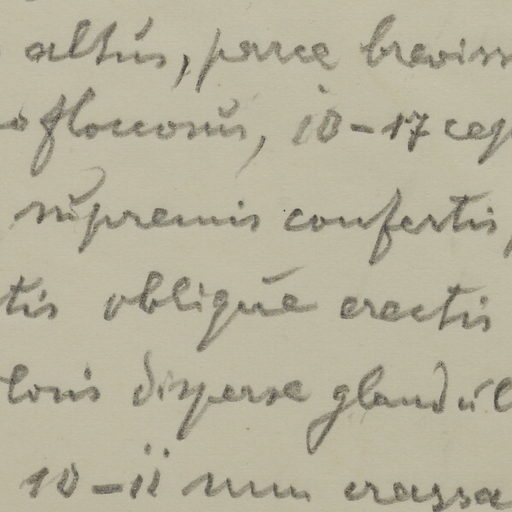 altus, parce breviss
floccosus, 10-17 cep
supremis confertis,
tis oblique erectis
lous disperse glandul
10-11 mm crassa